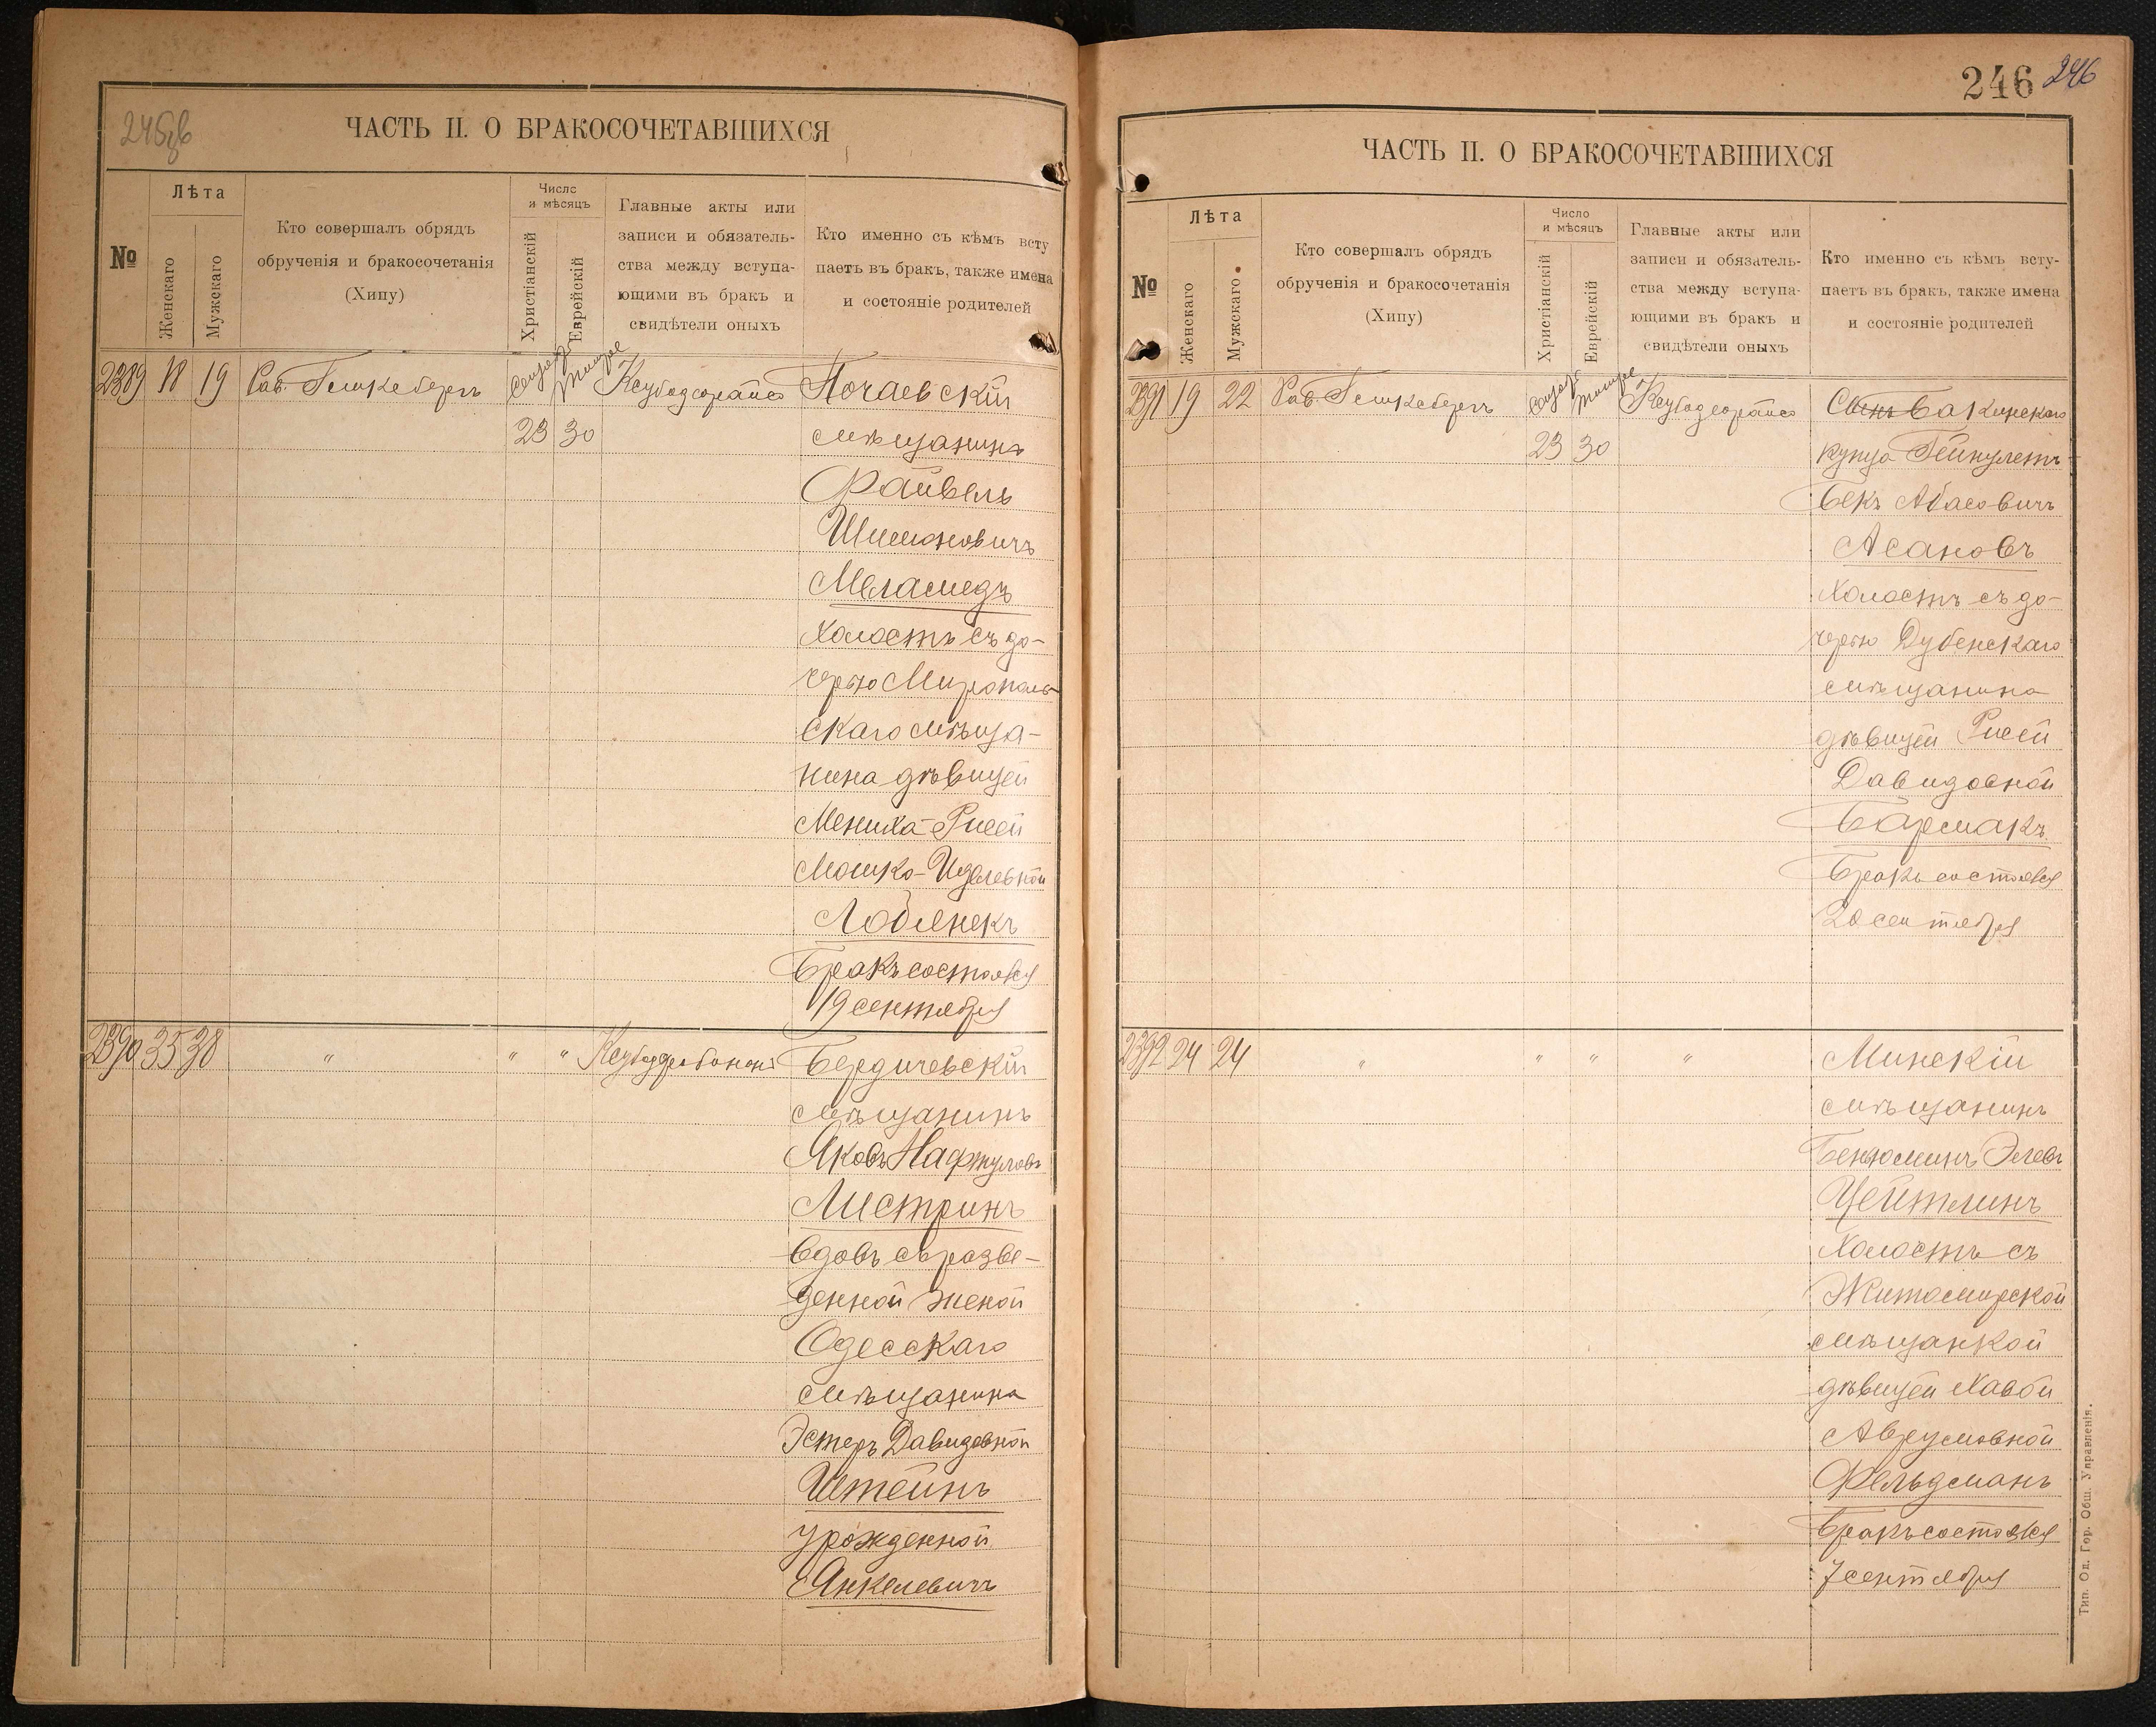 245об
ЧАСТЬ II. О БРАКОСОЧЕТАВШИХСЯ
№
Лѣта
Женскаго
Мужскаго
Кто совершалъ обрядъ
обрученія и бракосочетанія
(Хипу)
Число
и мѣсяцъ
Христіанскій
Еврейскій
Главные акты или
записи и обязатель-
ства между вступа-
ющими въ бракъ и
свидѣтели оныхъ
Кто именно съ кѣмъ всту
паетъ въ бракъ, также имена
и состояніе родителей
2389 18 19 Рав.
23 30
Почаевскій
мѣщанинъ
Файвель
Шимоновичъ
Меламедъ
холостъ съ до-
черью Мирополь-
скаго мѣща-
нина дѣвицей
Мениха-Рисей
Мошко-Иделевной
Бракъ состоялся
19 сентября
2390 35 38 " " "
Бердичевскій
мѣщанинъ
Яковъ Нафтуловъ
Листринъ
вдовъ съ разве-
денной женой
Одесскаго
мѣщанина
Эстеръ Давидовной
Штейнъ
урожденной
Янкелевичъ
246 246
ЧАСТЬ II. О БРАКОСОЧЕТАВШИХСЯ
№
Лѣта
Женскаго
Мужскаго
Кто совершалъ обрядъ
обрученія и бракосочетанія
(Хипу)
Число
и мѣсяцъ
Христіанскій
Еврейскій
Главные акты или
записи и обязатель-
ства между вступа-
ющими въ бракъ и
свидѣтели оныхъ
Кто именно съ кѣмъ всту-
паетъ въ бракъ, также имена
и состояніе родителей
2391 19 22 Рав.
23 30
Сынъ Бакинскаго
купца
Бекъ Абасовичъ
Асановъ
холостъ съ до-
черью Дубенскаго
мѣщанина
дѣвицей Рисей
Давидовной
Бармакъ
Бракъ состоялся
20 сентября
2392 24 24 " " " "
Минскій
мѣщанинъ
Беньюминъ Элевъ
Цейтлинъ
холостъ съ
Житомирской
мѣщанкой
дѣвицей Хавой
Аврумовной
Фельдманъ
Бракъ состоялся
7 сентября
Тип. Од. Гор. Общ. Управленія.